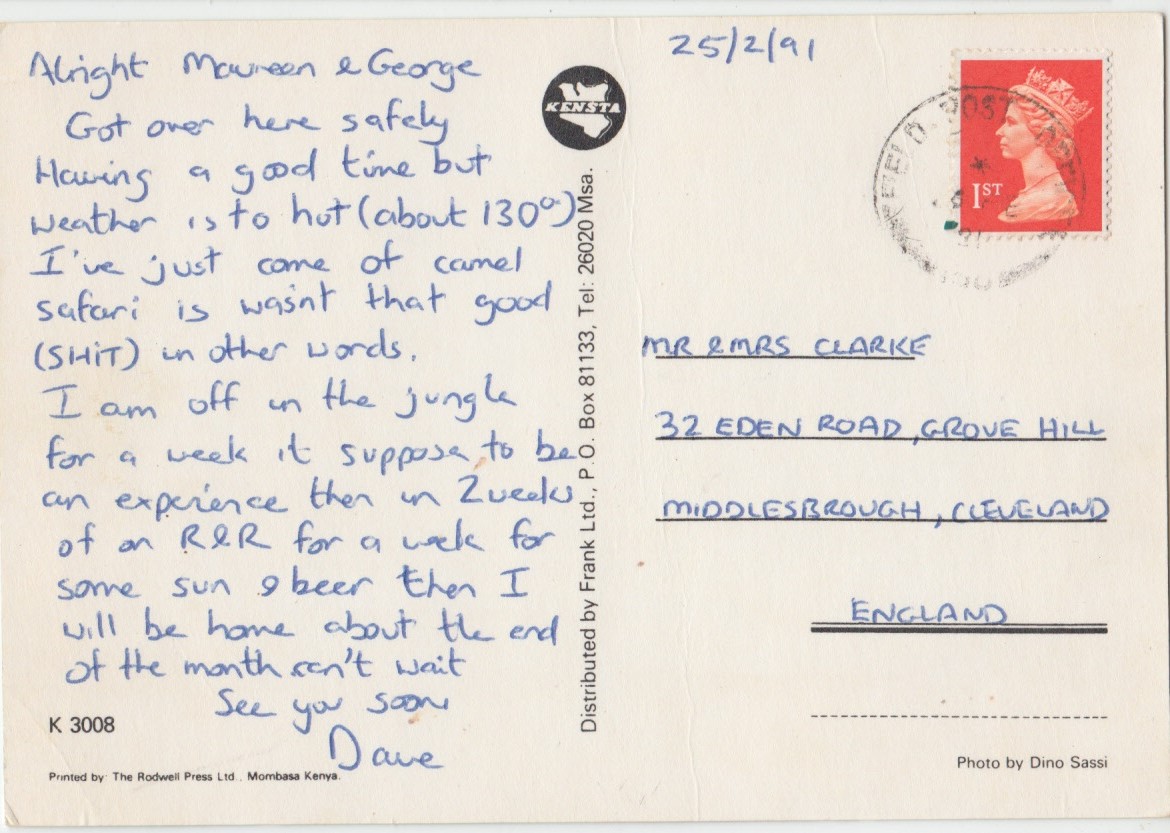 Alright Maureen & George
Got over here safely
Having a good time but
weather is to hot (about 130°)
I've just come of camel
safari is wasnt that good
(SHiT) in other words.
I am off in the jungle
for a week it suppose to be
an experience then in 2 weeks
of on R&R for a week for
some sun & beer then I
will be home about the end
of the month can't wait
See you soon
Dave
K 3008
Printed by The Rodwell Press Ltd., Mombasa Kenya.
KENSTA
Distributed by Frank Ltd., P.O. Box 81133, Tel: 26020 Msa.
25/2/91
1ST
FIELD POST
MR & MRS CLARKE
32 EDEN ROAD, GROVE HILL
MIDDLESBROUGH, CLEVELAND
ENGLAND
Photo by Dino Sassi